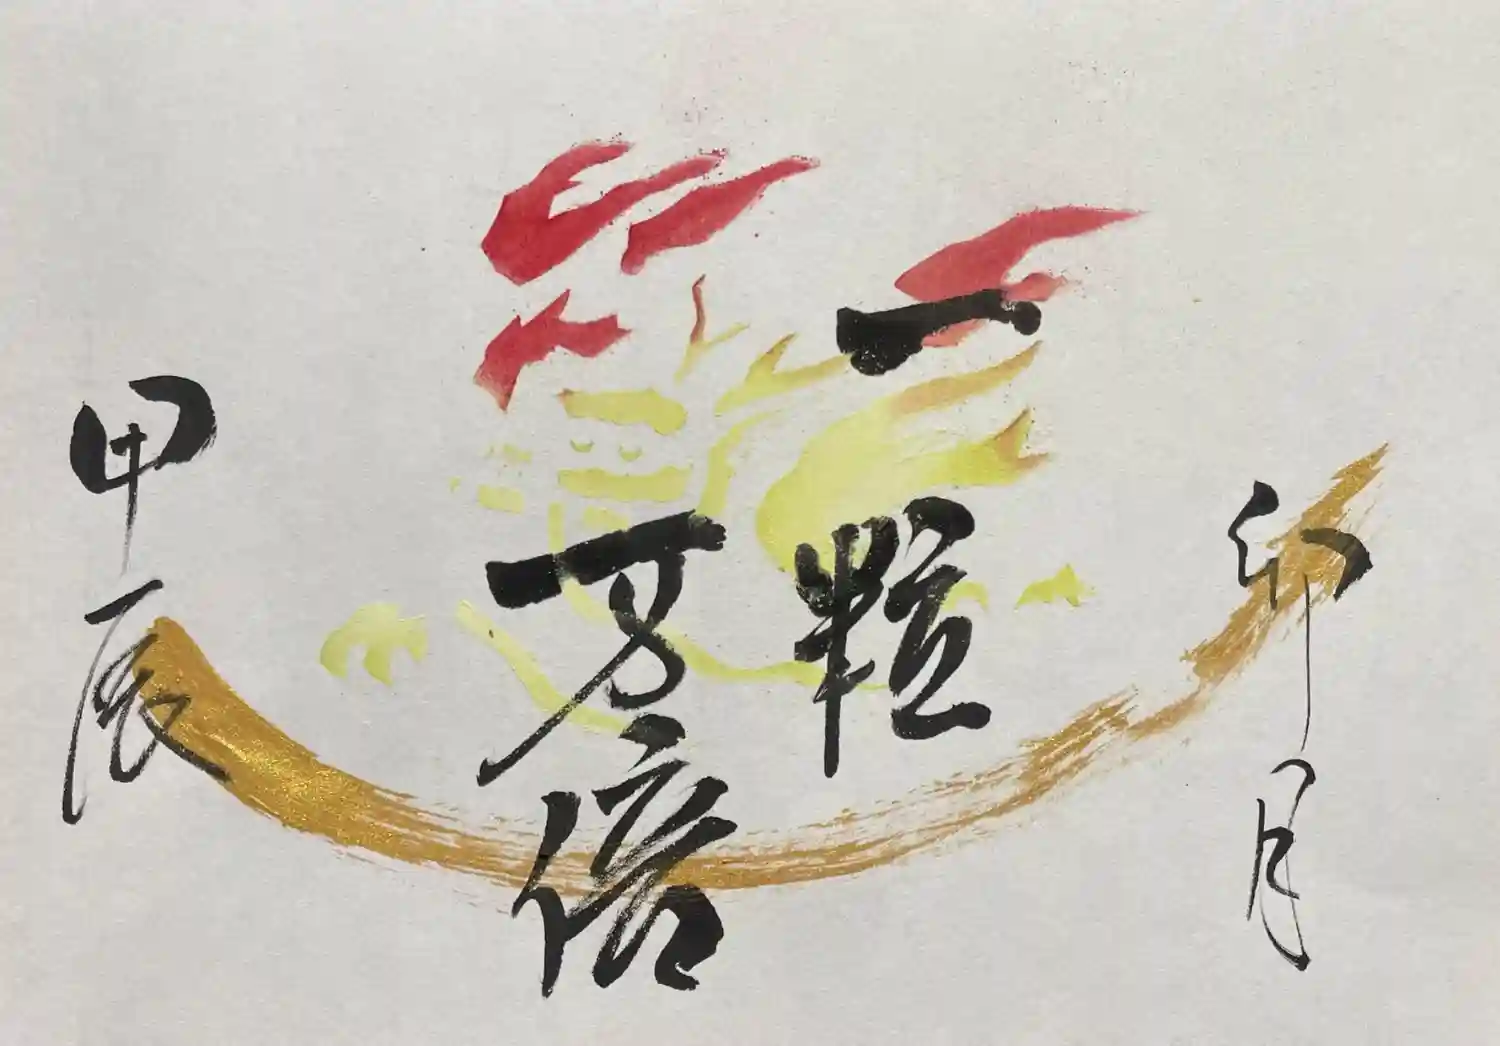 卯月
一粒
万倍
甲辰